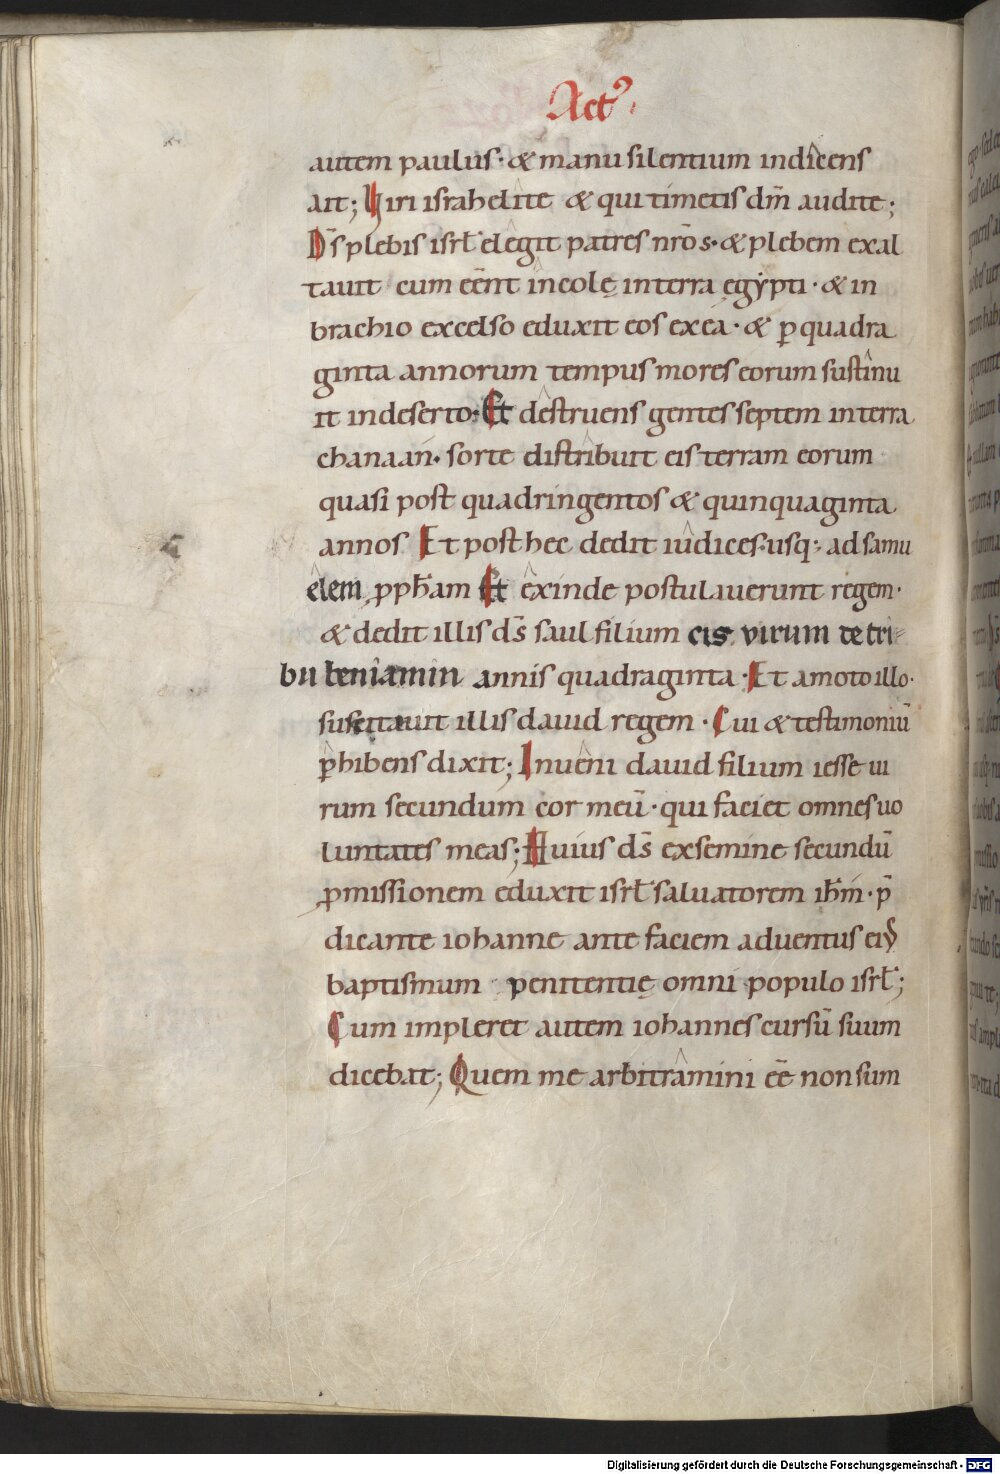 Act᾿
autem paulus· & manu silentium indicens
ait; Viri israhelite & qui timetis dm̄ audite;
D̄s plebis isrł elegit patres nrōs· & plebem exal
tavit cum eēnt incolę in terra egẏpti· & in
brachio excelso eduxit eos ex ea· & ꝑ quadra
ginta annorum tempus mores eorum sustinu
it in deserto· Et destruens gentes septem in terra
chanaan· sorte distribuit eis terram eorum
quasi post quadringentos & quinquaginta
annos Et post hec dedit iudices·usq; ad samu
elem ꝓpħam Et exinde postulauerunt regem·
& dedit illis ds̄ saul filium cis virum de tri
bu beniamin annis quadraginta· Et amoto illo·
suscitauit illis dauid regem· Cui & testimoniū
ꝑhibens dixit; Inueni dauid filium iesse ui
rum secundum cor meū· qui faciet omnes uo
luntates meas; Huius ds̄ ex semine secundū
ꝓmissionem eduxit isrł saluatorem iħm· p̄
dicante iohanne ante faciem aduentus eiꝰ
baptismum penitentię omni populo isrł;
Cum impleret autem iohannes cursū suum
dicebat; Quem me arbitramini eē non sum
Digitalisierung gefördert durch die Deutsche Forschungsgemeinschaft - DFG